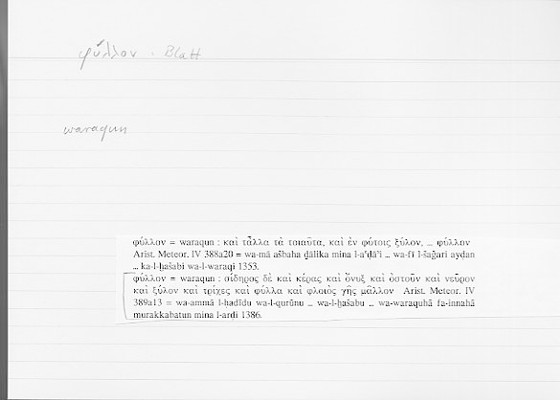 φύλλον - Blatt
waraqun
φύλλον = waraqun : καὶ τἆλλα τὰ τοιαῦτα, καὶ ἐν φύτοις ξύλον, ... φύλλον
Arist. Meteor. IV 388a20 = wa-mā ašbaha ḏālika mina l-aʿḍāʾi ... wa-fī l-šaǧari ayḍan
... ka-l-ḫašabi wa-l-waraqi 1353.
φύλλον = waraqun : σίδηρος δὲ καὶ κέρας καὶ ὄνυξ καὶ ὀστοῦν καὶ νεῦρον
καὶ ξύλον καὶ τρίχες καὶ φύλλα καὶ φλοιὸς γῆς μᾶλλον Arist. Meteor. IV
389a13 = wa-ammā l-ḥadīdu wa-l-qurūnu ... wa-l-ḫašabu ... wa-waraquhā fa-innahā
murakkabatun mina l-arḍi 1386.